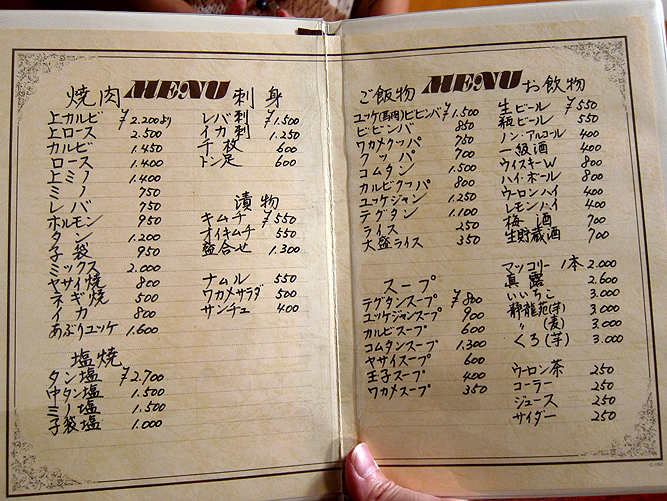 MENU
焼肉
上カルビ ¥2.200より
上ロース 2.500
カルビ 1.450
ロース 1.400
上ミノ 1.400
ミノ 750
レバ 750
ホルモン 950
タン 1.200
子袋 950
ミックス 2.000
ヤサイ焼 800
ネギ焼 500
イカ 800
あぶりユッケ 1.600
塩焼
タン塩 ¥2.700
中タン塩 1.500
ミノ塩 1.500
子袋塩 1.000
刺身
レバ刺 ¥1.500
イカ刺 1.250
千枚 600
トン足 600
漬物
キムチ ¥550
オイキムチ 550
盛合せ 1.300
ナムル 550
ワカメサラダ 500
サンチュ 400
MENU
ご飯物
ユッケ(馬肉)ビビンバ ¥1.500
ビビンバ 850
ワカメクッパ 750
クッパ 700
コムタン 1.500
カルビクッパ 800
ユッケジャン 1.250
テグタン 1.100
ライス 250
大盛ライス 350
スープ
テグタンスープ ¥800
ユッケジャンスープ 900
カルビスープ 600
コムタンスープ 1.300
ヤサイスープ 600
玉子スープ 400
ワカメスープ 350
お飲物
生ビール ¥550
瓶ビール 550
ノン・アルコール 400
一級酒 400
ウイスキーW 800
ハイ・ボール 800
ウーロンハイ 400
レモンハイ 400
梅酒 700
生貯蔵酒 700
マッコリー 1本 2.000
真露 2.600
いいちこ 3.000
(芋) 3.000
〃 (麦) 3.000
くろ(芋) 3.000
ウーロン茶 250
コーラー 250
ジュース 250
サイダー 250